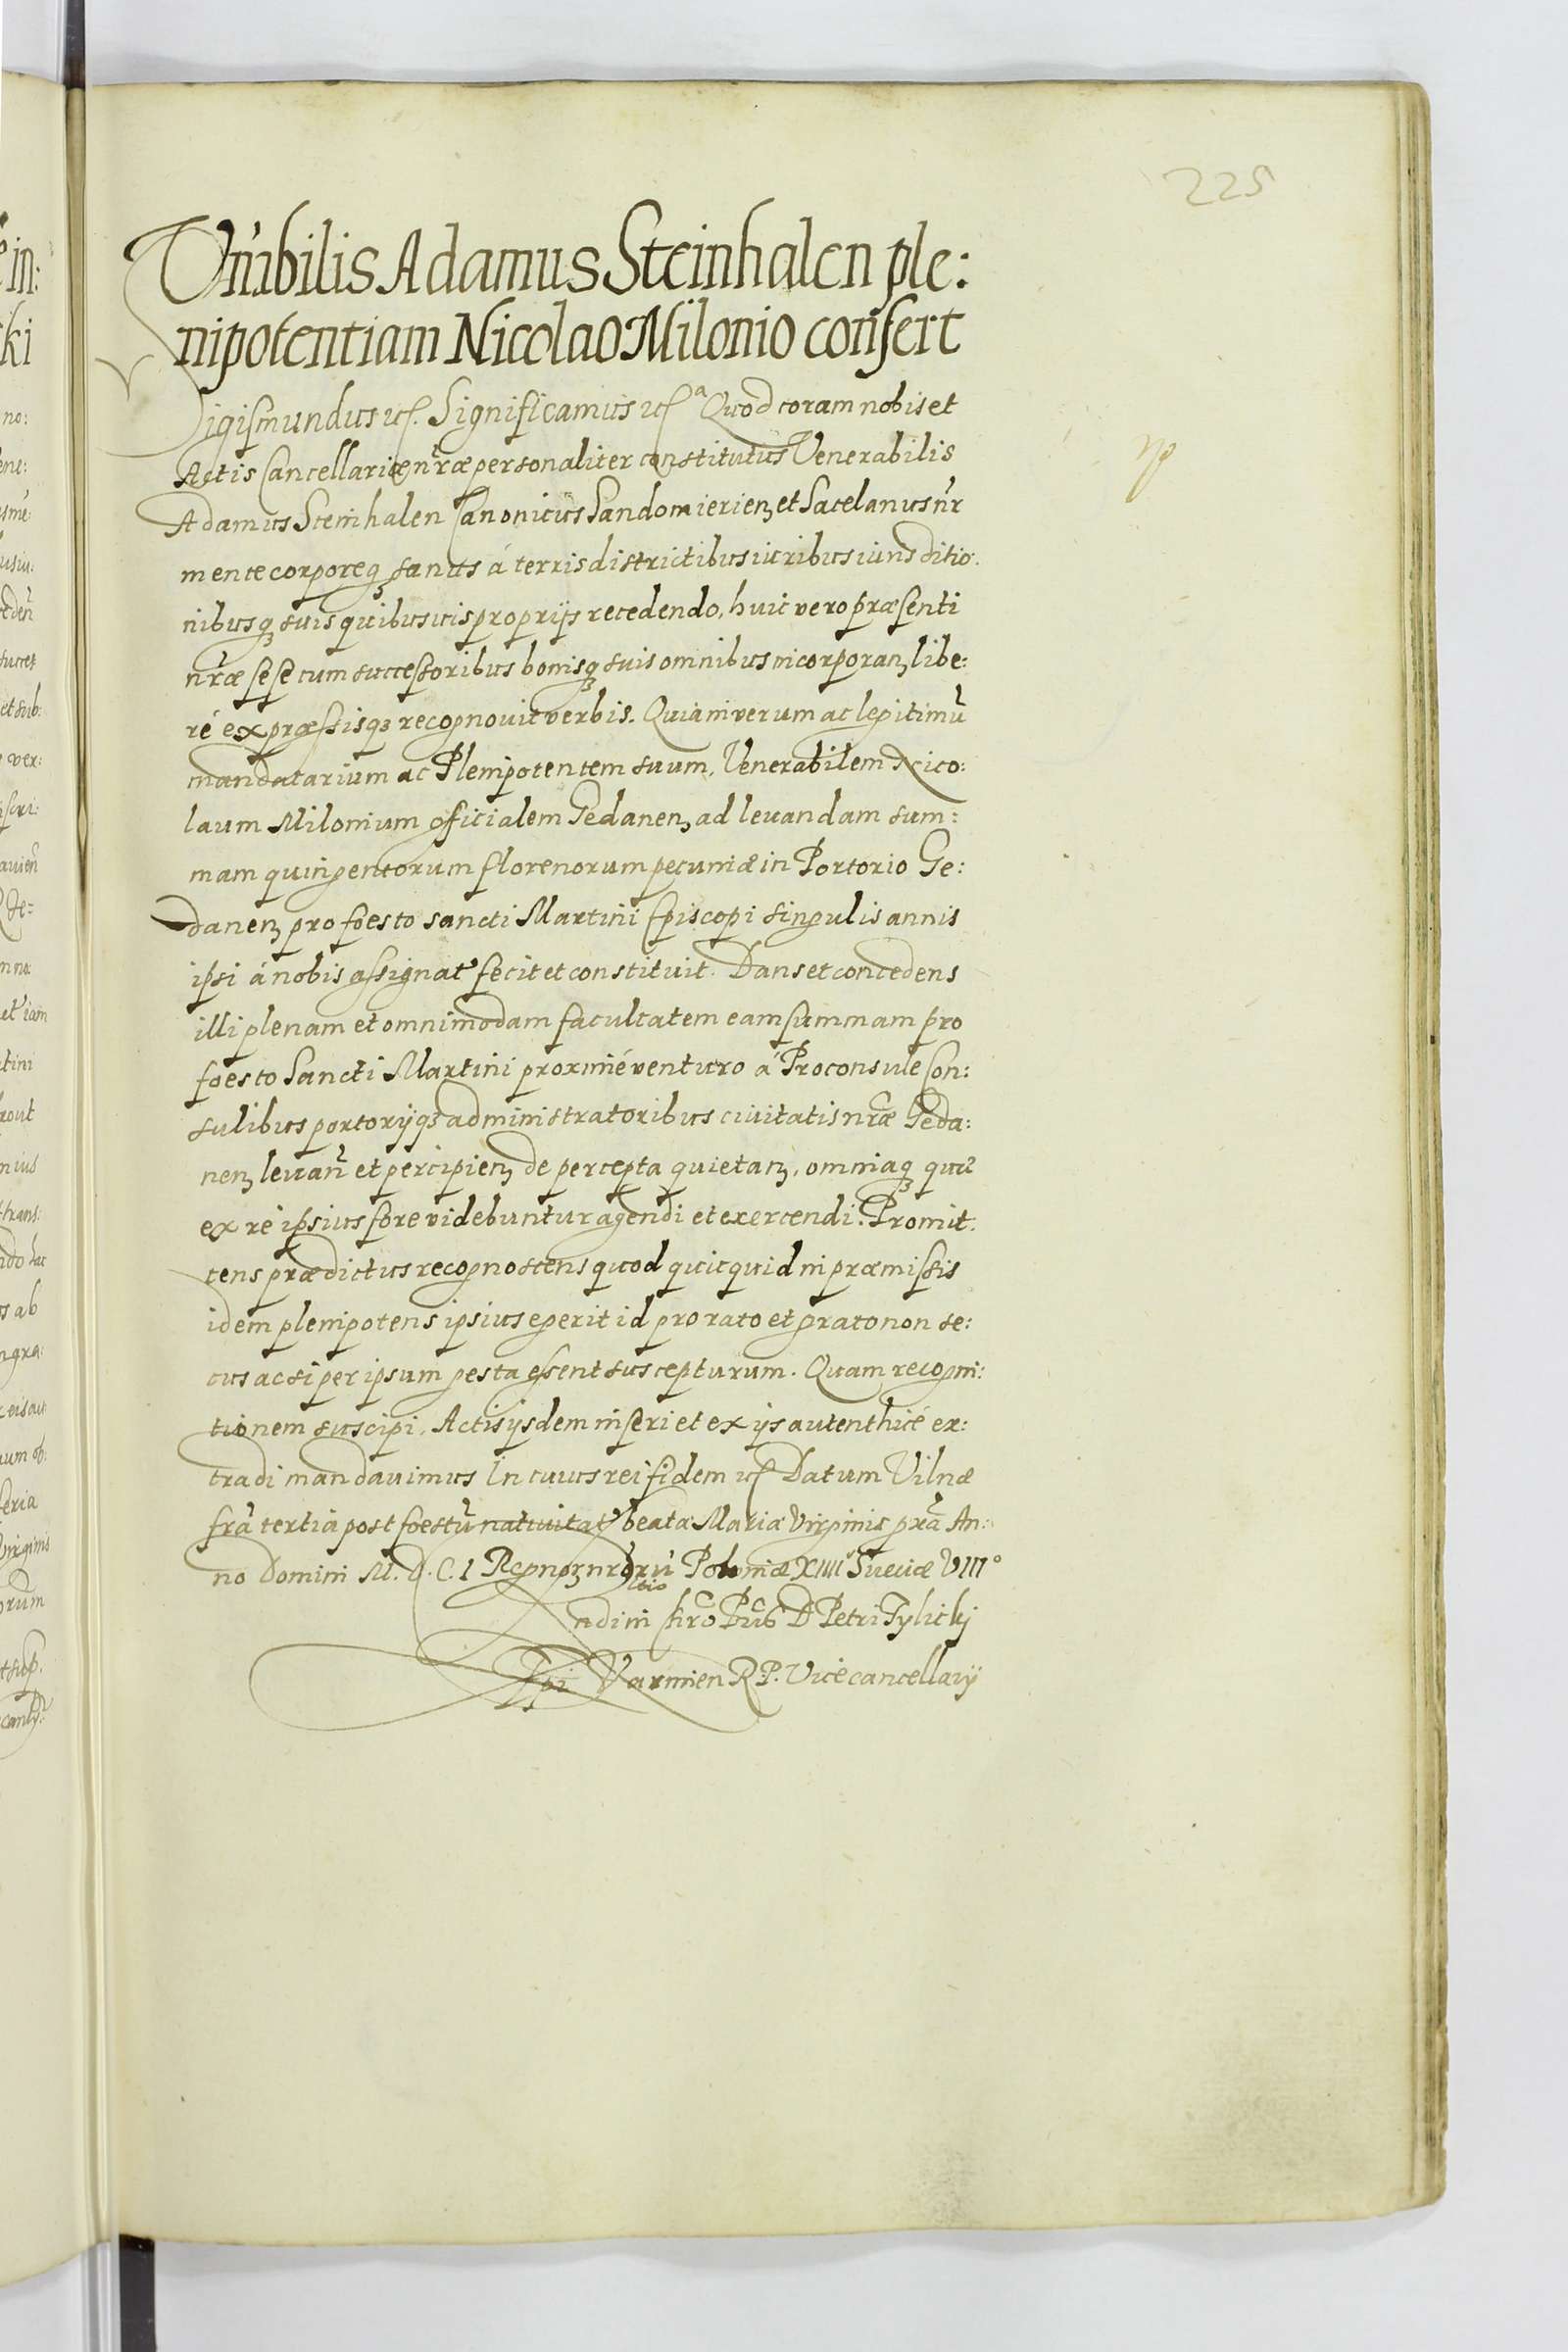 225
Vnibilis Adamus Steinhalen ple:
nipotentiam Nicolao Milonio confert
Sigismundus etc. Significamus etc.a Quod coram nobis et
Actis Cancellariæ nr̃æ personaliter constitutus Venerabilis
Adamus Steinhalen Canonicus Sandomierienȝ et Sacelanus nr̃
mente corporeqȝ sanus á terris districtibus iuribus iurisditio:
nibusqȝ suis quibusuis proprijs recedendo, huic vero præsenti
nr̃æ sese cum successoribus bonisqȝ suis omnibus incorporanȝ libe:
ré expræssisqȝ recognouit verbis. Quia in verum ac legitimũ
mandatarium ac Plenipotentem suum, Venerabilem Nico:
laum Milonium officialem Gedanenȝ ad leuandam sum:
mam quingentorum florenorum pecuniæ in Portorio Ge:
danenȝ pro foesto sancti Martini Episcopi singulis annis
ipsi á nobis assignat' fecit et constituit. Dans et concedens
illi plenam et omnimodam facultatem eam summam pro
foesto Sancti Martini proximé venturo á Proconsule Con:
sulibus portorijqȝ administratoribus ciuitatis nr̃æ Geda:
nenȝ leuan̄ et percipienȝ de percepta quietanȝ, omniaqȝ quæ
ex ré ipsius fore videbuntur agendi et exercendi. Promit:
tens prædictus recognoscens quod quicquid in præmissis
idem plenipotens ipsius egerit id pro rato et grato non se:
cus ac si per ipsum gesta essent suscepturum. Quam recogni:
tionem suscipi, Actis ijsdem inseri et ex ijs autenthicé ex:
tradi mandauimus In cuius rei fidem etc. Datum Vilnæ
fr̃a tertia post foestũ natiuitat' beatæ Mariæ Virginis pr̃a An:
no Domini M.D.C.I Regnoȝ nrõrũ Poloniæ XIIII° Sueciæ VIII°
Petri Tylickj
Epi Varmien R.P. Vicecancellarij